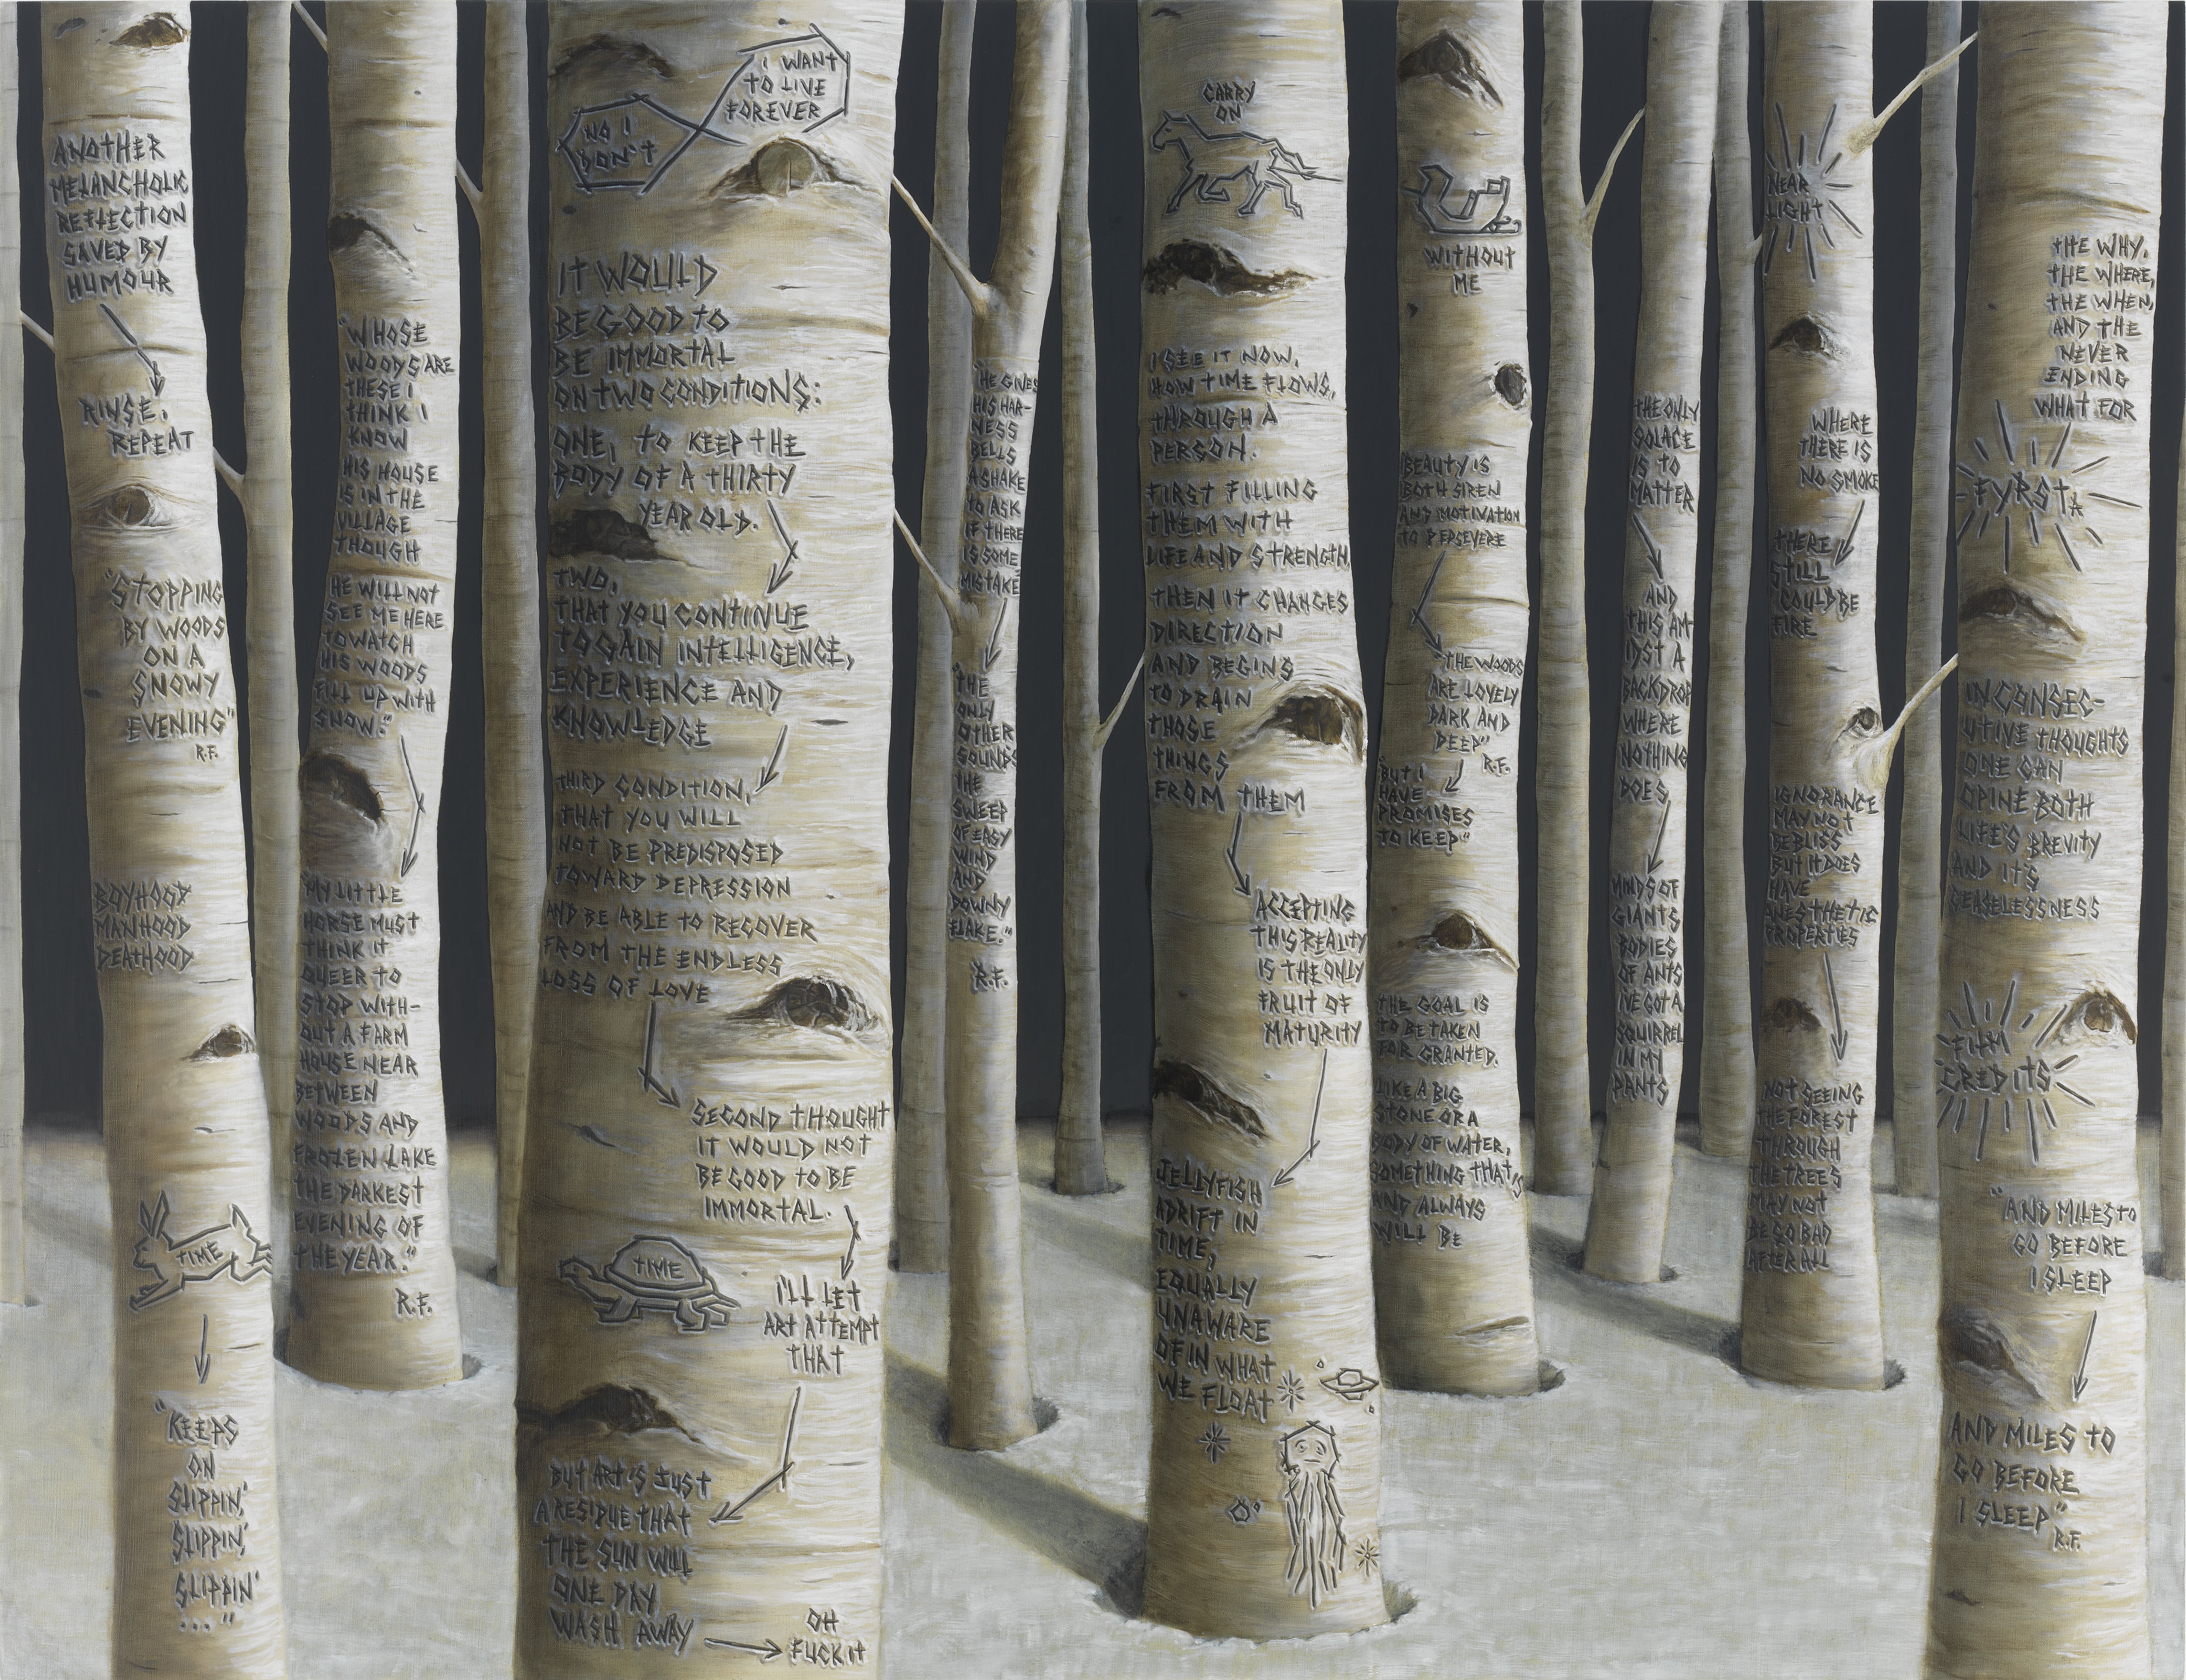 ANOTHER
MELANCHOLIC
REFLECTION
SAVED BY
HUMOUR
RINSE.
REPEAT
"STOPPING
BY WOODS
ON A
SNOWY
EVENING"
R.F.
BOYHOOD
MANHOOD
DEATHHOOD
TIME
"KEEPS
ON
SLIPPIN,'
SLIPPIN,'
SLIPPIN'
..."
"WHOSE
WOODS ARE
THESE I
THINK I
KNOW
HIS HOUSE
IS IN THE
VILLAGE
THOUGH
HE WILL NOT
SEE ME HERE
TO WATCH
HIS WOODS
FILL UP WITH
SNOW."
"MY LITTLE
HORSE MUST
THINK IT
QUEER TO
STOP WITH-
OUT A FARM
HOUSE NEAR
BETWEEN
WOODS AND
FROZEN LAKE
THE DARKEST
EVENING OF
THE YEAR."
R.F.
I WANT
TO LIVE
FOREVER
NO I
DON'T
IT WOULD
BE GOOD TO
BE IMMORTAL
ON TWO CONDITIONS:
ONE, TO KEEP THE
BODY OF A THIRTY
YEAR OLD.
TWO,
THAT YOU CONTINUE
TO GAIN INTELLIGENCE,
EXPERIENCE AND
KNOWLEDGE
THIRD CONDITION,
THAT YOU WILL
NOT BE PREDISPOSED
TOWARD DEPRESSION
AND BE ABLE TO RECOVER
FROM THE ENDLESS
LOSS OF LOVE
SECOND THOUGHT
IT WOULD NOT
BE GOOD TO BE
IMMORTAL.
TIME
I'LL LET
ART ATTEMPT
THAT
BUT ART IS JUST
A RESIDUE THAT
THE SUN WILL
ONE DAY
WASH AWAY
OH
FUCK IT
"HE GIVES
HIS HAR-
NESS
BELLS
A SHAKE
TO ASK
IF THERE
IS SOME
MISTAKE"
"THE
ONLY
OTHER
SOUND'S
THE
SWEEP
OF EASY
WIND
AND
DOWNY
FLAKE."
R.F.
CARRY
ON
I SEE IT NOW,
HOW TIME FLOWS,
THROUGH A
PERSON.
FIRST FILLING
THEM WITH
LIFE AND STRENGTH,
THEN IT CHANGES
DIRECTION
AND BEGINS
TO DRAIN
THOSE
THINGS
FROM THEM
ACCEPTING
THIS REALITY
IS THE ONLY
FRUIT OF
MATURITY
JELLYFISH
ADRIFT IN
TIME,
EQUALLY
UNAWARE
OF IN WHAT
WE FLOAT
WITHOUT
ME
BEAUTY IS
BOTH SIREN
AND MOTIVATION
TO PERSEVERE
"THE WOODS
ARE LOVELY
DARK AND
DEEP"
R.F.
"BUT I
HAVE
PROMISES
TO KEEP"
THE GOAL IS
TO BE TAKEN
FOR GRANTED.
LIKE A BIG
STONE OR A
BODY OF WATER,
SOMETHING THAT'S
AND ALWAYS
WILL BE
THE ONLY
SOLACE
IS TO
MATTER
AND
THIS AM-
IDST A
BACKDROP
WHERE
NOTHING
DOES
MINDS OF
GIANTS
BODIES
OF ANTS
I'VE GOT A
SQUIRREL
IN MY
PANTS
NEAR
LIGHT
WHERE
THERE IS
NO SMOKE
THERE
STILL
COULD BE
FIRE
IGNORANCE
MAY NOT
BE BLISS
BUT IT DOES
HAVE
ANESTHETIC
PROPERTIES
NOT SEEING
THE FOREST
THROUGH
THE TREES
MAY NOT
BE SO BAD
AFTER ALL
THE WHY,
THE WHERE,
THE WHEN,
AND THE
NEVER
ENDING
WHAT FOR
FYRST
IN CONSEC-
UTIVE THOUGHTS
ONE CAN
OPINE BOTH
LIFE'S BREVITY
AND IT'S
CEASELESSNESS
FILM
CREDITS
"AND MILES TO
GO BEFORE
I SLEEP
AND MILES TO
GO BEFORE
I SLEEP"
R.F.